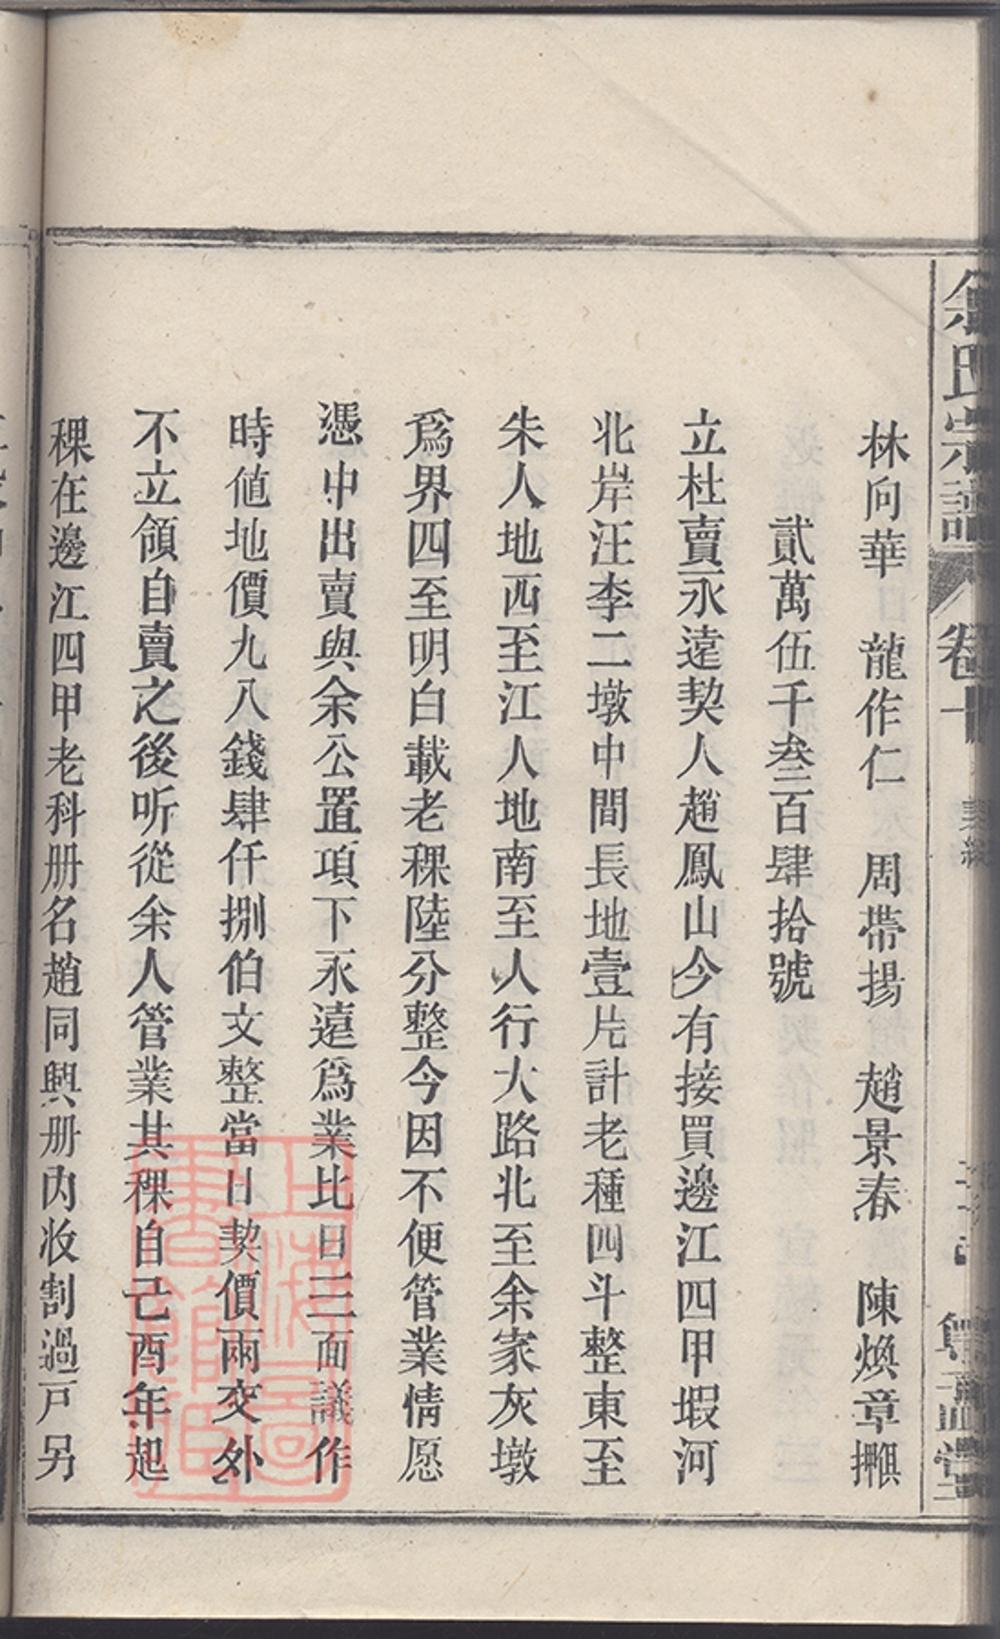 余氏宗譜
卷十
林向華 龍作仁 周帶揚 趙景春 陳煥章
貳萬伍千叁百肆拾號
立杜賣永遠契人趙鳳山今有接買邊江四甲塅河
北岸汪李二墩中間長地壹片計老種四斗整東至
朱人地西至江人地南至人行大路北至余家灰墩
爲界四至明白載老稞陸分整今因不便管業情愿
憑中出賣與余公置項下永遠爲業比日三面議作
時値地價九八錢肆仟捌伯文整當日契價兩交外
不立領自賣之後听從余人管業共稞自己酉年起
稞在邊江四甲老科册名趙同興册内收割過戸另
上海圖書館藏